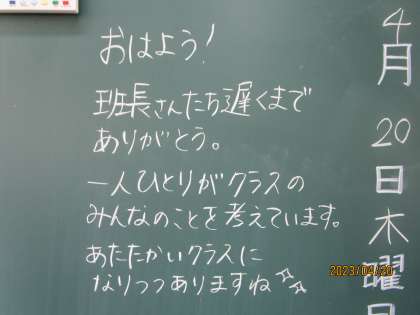 おはよう!
班長さんたち遅くまで
ありがとう。
一人ひとりがクラスの
みんなのことを考えています。
あたたかいクラスに
なりつつありますね☆☆
4月20日木曜日
2023/04/20